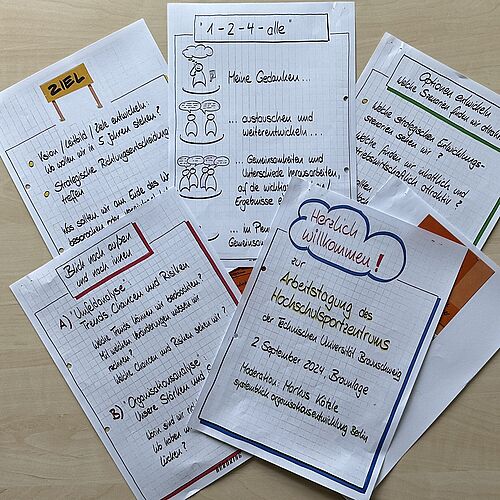 ZIEL
Vision / Leitbild / Ziele entwickeln:
Wo wollen wir in 5 Jahren stehen?
Strategische Richtungsentscheidung
treffen
Was sollen wir am Ende des
besprochen
"1 - 2 - 4 - alle"
Meine Gedanken ...
... austauschen und
weiterentwickeln ...
... Gemeinsamkeiten und
Unterschiede herausarbeiten,
auf die
Ergebnisse
... im
Gemeinsam
Optionen entwickeln
Welche Szenarien finden wir
Welche strategischen Entwicklungs-
szenarien sehen wir?
Welche finden wir inhaltlich und
betriebswirtschaftlich attraktiv?
Blick nach außen
und nach innen
A) Umfeldanalyse:
Trends, Chancen und Risiken
Welche Trends können wir beobachten?
Mit welchen Veränderungen müssen wir
rechnen?
Welche Chancen und Risiken sehen wir?
B) Organisationsanalyse
Unsere Stärken und
Worin sind wir
Wo haben wir
Lücken?
Herzlich
willkommen!
zur
Arbeitstagung des
Hochschulsportzentrums
der Technischen Universität Braunschweig
2. September 2024, Braunlage
Moderation: Markus Kötzle
systemblick organisationsentwicklung Berlin